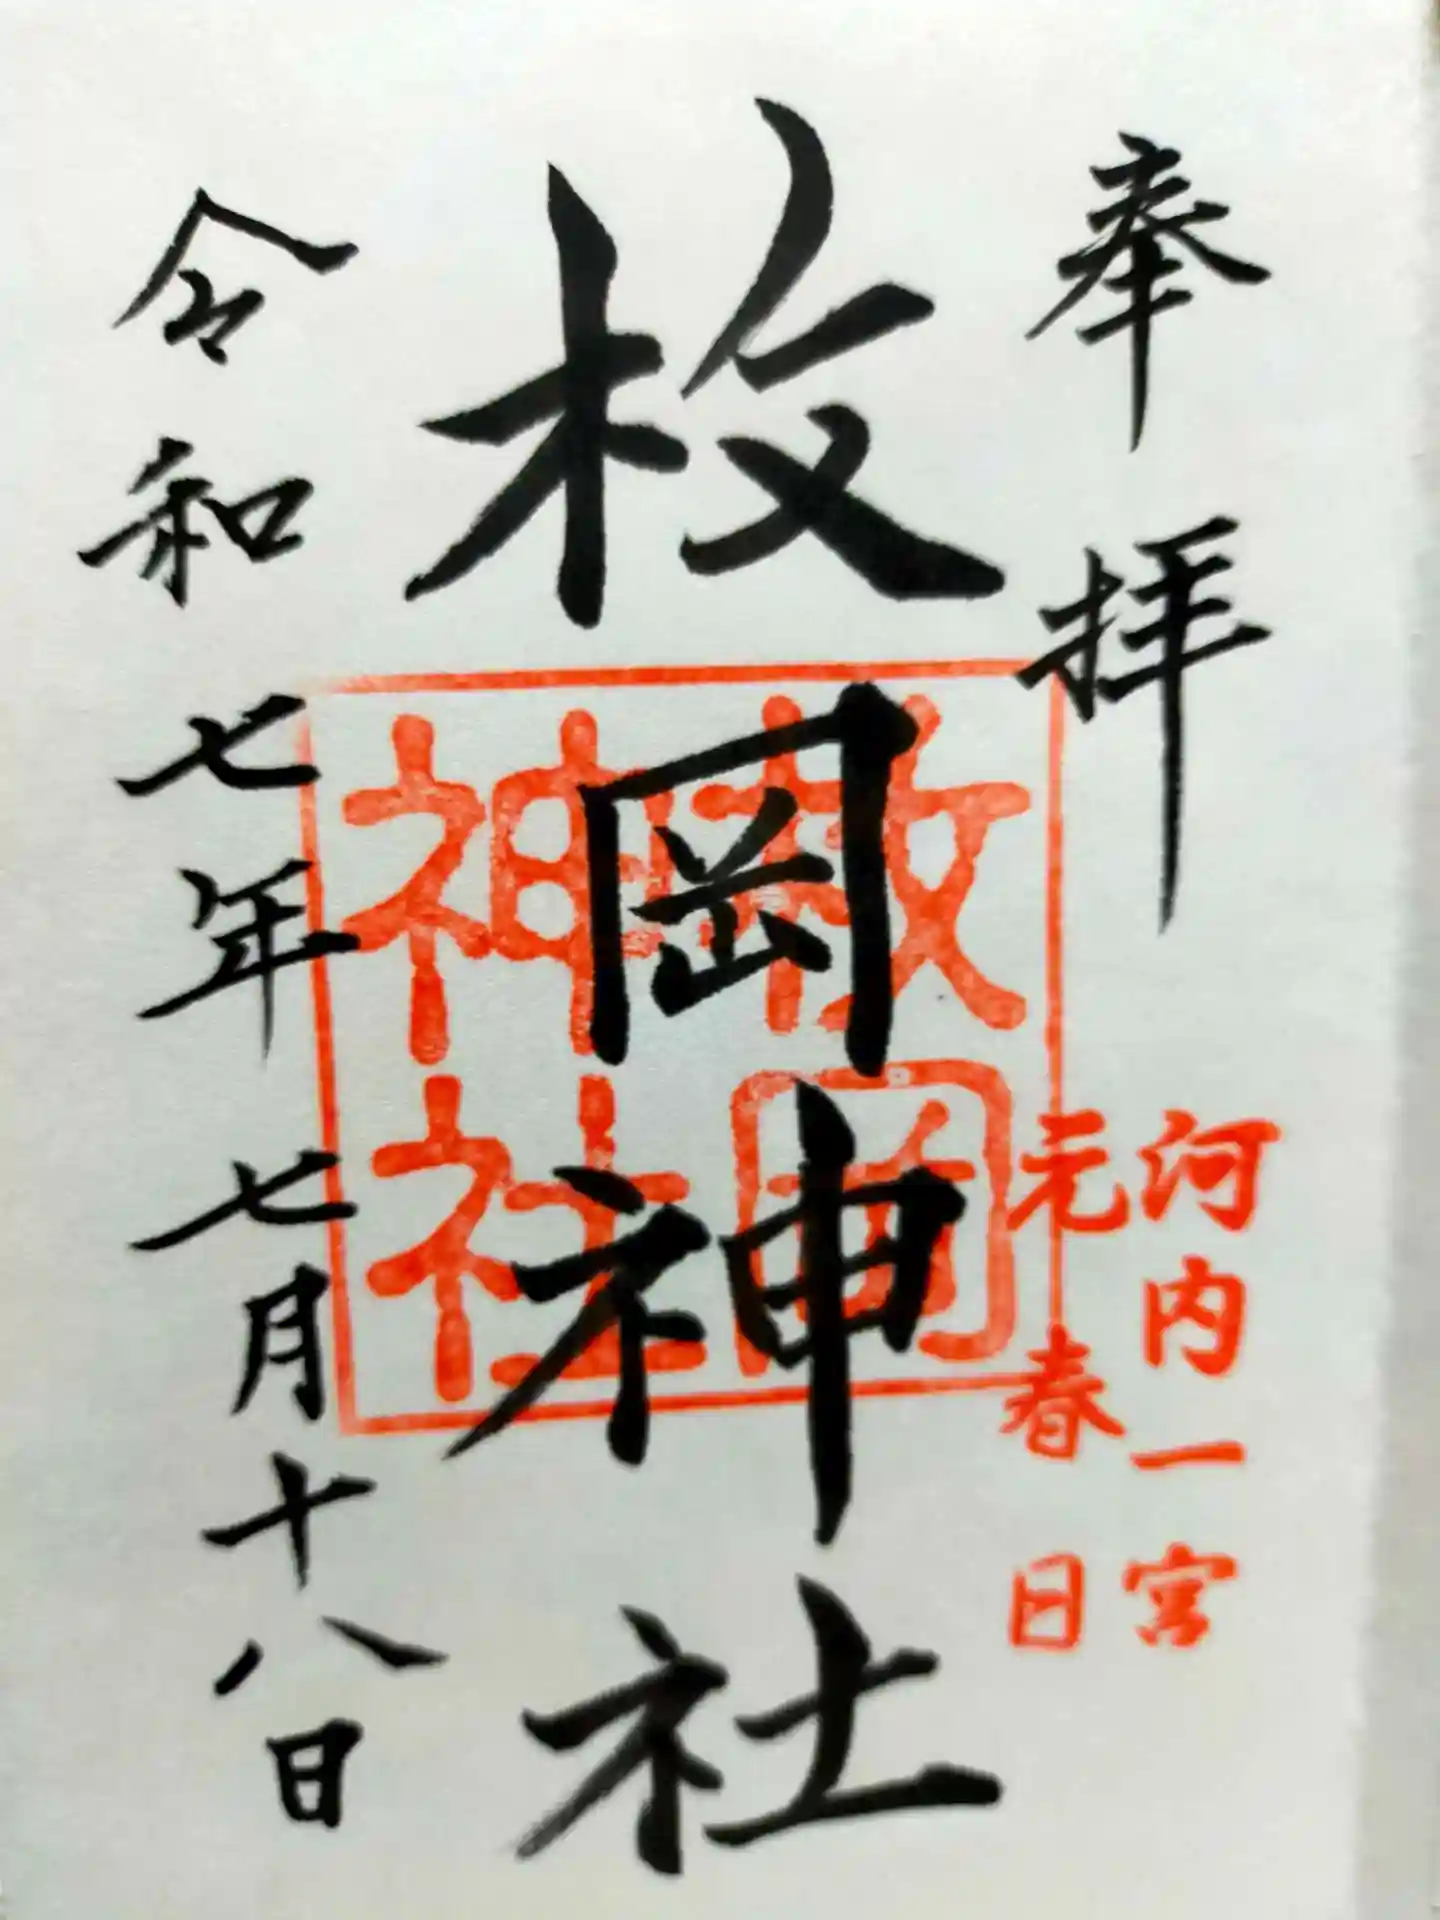 奉拝
河内一宮
元春日
枚岡神社
枚岡
神社
令和七年七月十八日